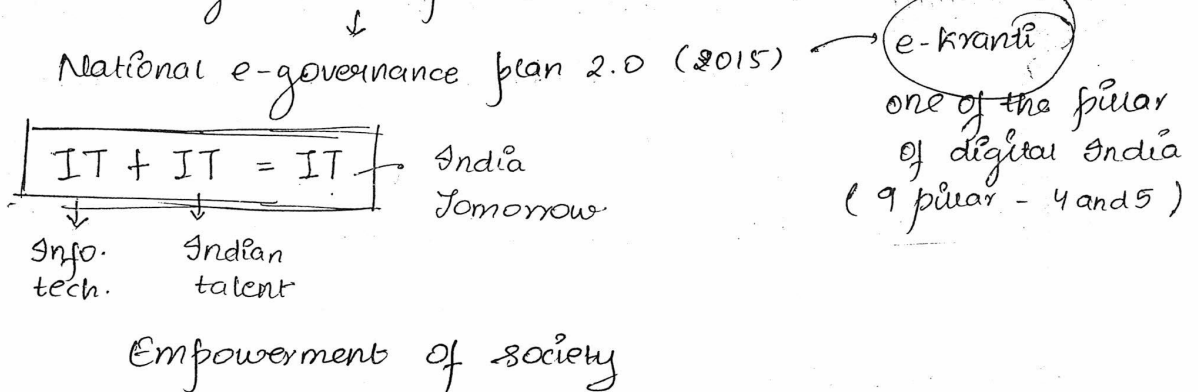 National e-governance plan 2.0 (2015) → e-Kranti
one of the pillar
of digital India
(9 pillar - 4 and 5)
IT + IT = IT → India
Tomorrow
Info. tech.
Indian talent
Empowerment of society